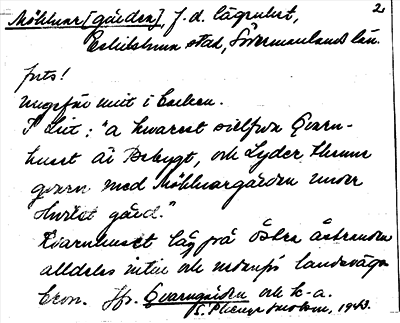 Möllnar[gården], f.d. lägenhet, 2
Eskilstuna stad, Södermanlands län.
forts!
ungefär mitt i backen.
I Lit: "a hwarest sielfva Qvarn-
huset är Bebygt, och Lyder Denne
qvarn med Möllnargården under
gård."
Kvarnhuset låg på östra åstranden
alldeles intill och nedanför landsvägs
bron. Jfr. Qvarngården och k-a.
1943.